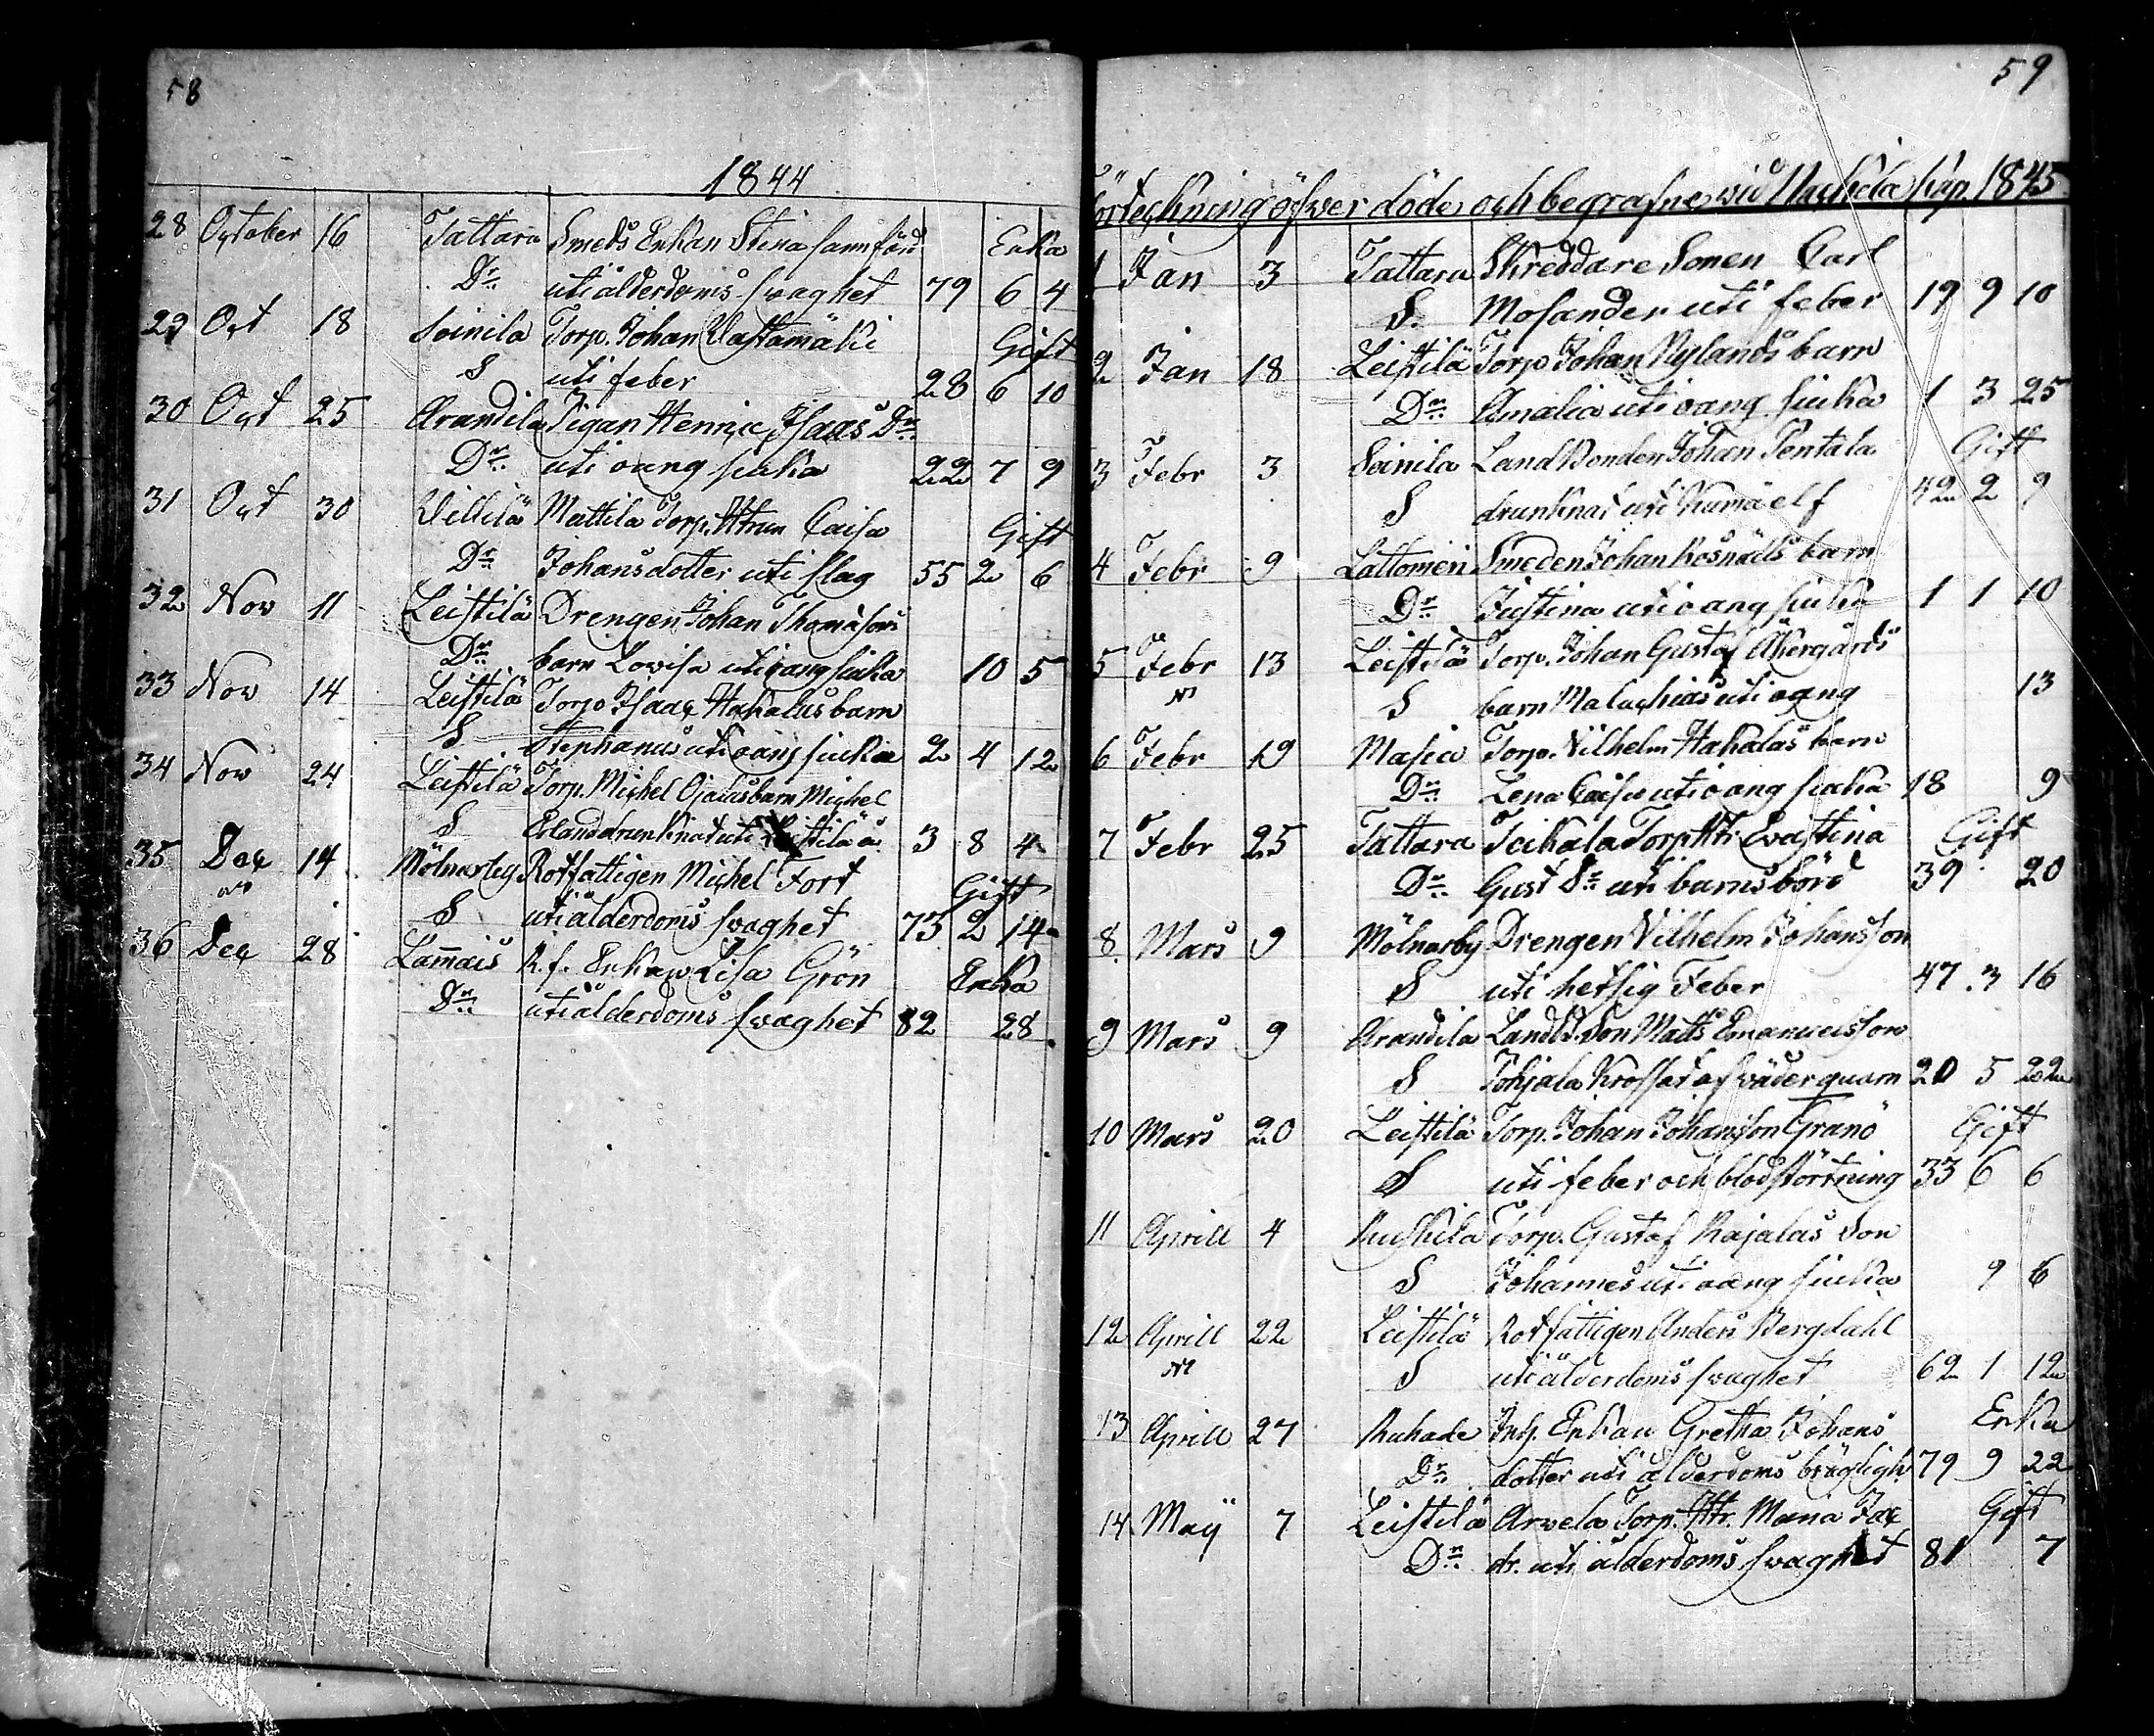 58
1844
28 October 16 Tattara Smeds Enkan Stina sannfärd Enka
Dr. uti ålderdoms swaghet 79 6 4
29 Oct 18 Soinila Torp. Johan Wastamäki Gift
S uti feber 28 6 10
30 Oct 25 Arandila Pigan Henrica Isaacs Dr.
Dr. uti oang siuka 22 7 9
31 Oct 30 Villilä Mattila Torp. Htrun Caisa Gift
Dr. Johansdotter uti slag 55 2 6
32 Nov 11 Leistilä Drengen Johan Thomassons
Dr. barn Lovisa uti oang siuka 10 5
33 Nov 14 Leistilä Torp Isaac Hakalas barn
S Stephanus uti oang siuka 2 4 12
34 Nov 24 Leistilä Torp. Michel Ojalas barn Michel
S Erland drunknat uti Leistilä å 3 8 4
35 Dec 14 Mölnarby Rotfattigen Michel Fort Gift
S uti ålderdoms swaghet 73 2 14
36 Dec 28 Lammais R.f. Enkan Lisa Grön Enka
Dr. uti ålderdoms swaghet 82 28
59
Förteckning öfwer döde och begrafne wid Nackila Kap. 1845
1 Jan 3 Tattara Skreddare Sonen Carl
S. Mosander uti feber 19 9 10
2 Jan 18 Leistilä Torp Johan Nylands barn
Dr. Amalia uti oang siuka 1 3 25
3 Febr 3 Soinila LandBonden Johan Pentala Gift
S drunknat uti Kumå elf 42 2 9
4 Febr 9 Lattomeri Smeden Johan Rosnälls barn
Dr. Justina uti oang siuka 1 1 10
5 Febr 13 Leistilä Torp. Johan Gustaf Åkergårds
S barn Malachias uti oang 13
6 Febr 19 Masia Torp. Vilhelm Hakalas barn
Dr. Lena Caisa uti oang siuka 18 9
7 Febr 25 Tattara Teikala Torp Htr. Evastina Gift
Dr. Gust Dr. uti barnsbörd 39 20
8 Mars 9 Mölnarby Drengen Vilhelm Johansson
S uti hetsig Feber 47 3 16
9 Mars 9 Arandila Landb. Son Matts Emanuelsson
S Tohjala krossad af wäderquarn 20 5 22
10 Mars 20 Leistilä Torp. Johan Johansson Granö Gift
S uti feber och blodstörtning 33 6 6
11 Aprill 4 Ruskila Torp. Gustaf Rajalas Son
S Johannes uti oang siuka 9 6
12 Aprill 22 Leistilä Rotfattigen Anders Bergdahl
S uti ålderdoms swaghet 62 1 12
13 Aprill 27 Ruhade Inh. Enkan Gretha Johans Enka
Dr. dotter uti ålderdoms bräcligh 79 9 22
14 Maij 7 Leistilä Arvela Torp. Htr. Maria Jac Gift
Dr. dr. uti ålderdoms swaghet 81 7